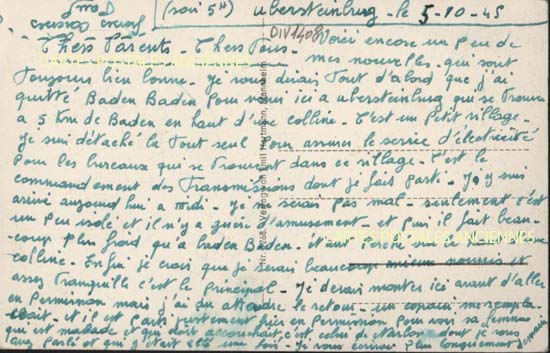 (soir 5H) ubersteinburg - le 5-10-45
DIV14089
Chers Parents - Chers Tous - Voici encore un peu de
mes nouvelles - qui sont
toujours bien bonne - je vous dirais tout d'abord que j'ai
quitté Baden Baden pour venir ici a ubersteinburg qui se trouve
a 5 km de Baden en haut d'une colline - C'est un petit village -
Je suis détaché la tout seul pour assurer le service d'électricité
pour les bureaux qui se trouvent dans ce village - C'est le
commandement des Transmissions dont je fais parti - J'y suis
arrivé aujourd'hui a midi - Je ne serais pas mal - seulement c'est
un peu isolé et il n'y a guère d'amusement - et puis il fait beau-
coup plus froid qu'a baden Baden -
CARTES POSTALES ANCIENNES
colline - Enfin je crois que je serais beaucoup mieux nourris et
assez tranquille c'est le principal - Je devrais monter ici avant d'aller
en permission mais j'ai du attendre le retour - un copain me rempla-
cait - et il est parti justement hier en permission pour voir sa femme
qui est malade et qui doit accoucher - c'est celui de dont je vous
avez parlé et qui y était allé une fois - Je vous écrirai plus longuement
demain
Nr. 9268 - Verlag von Emil Hartmann, Mannheim